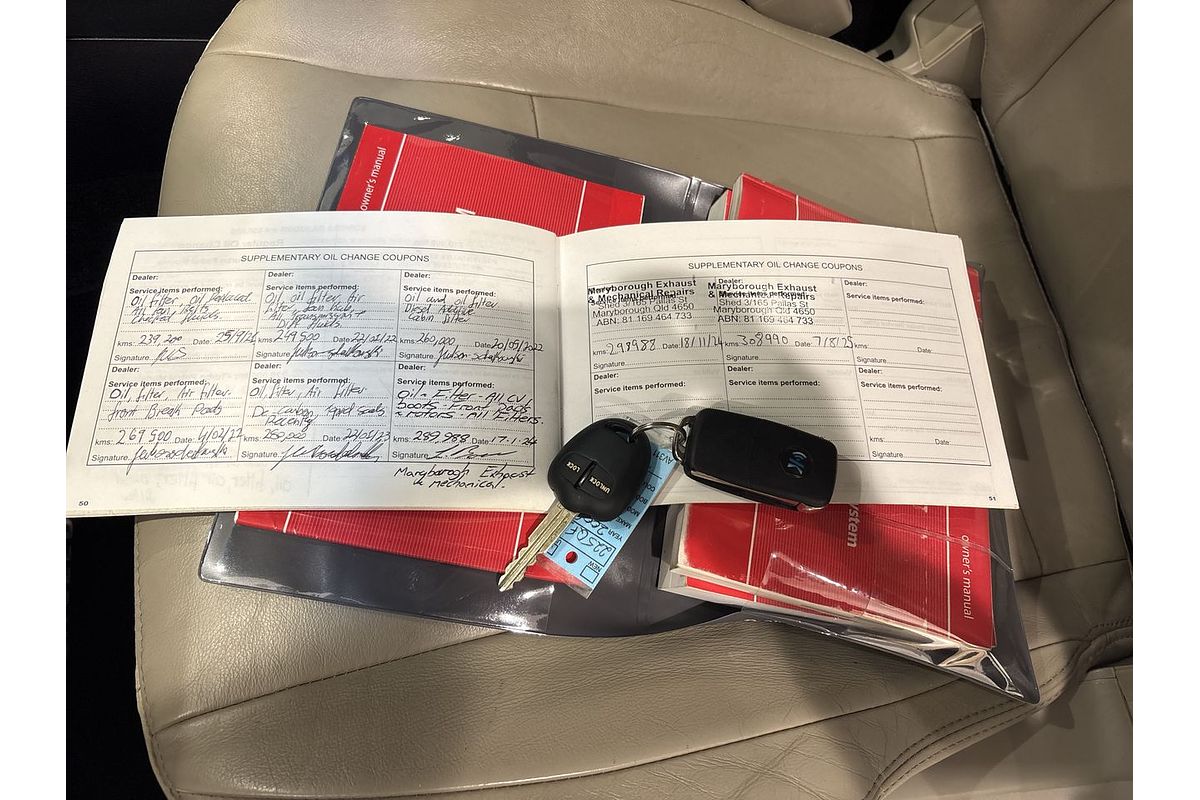 owner's manual
SUPPLEMENTARY OIL CHANGE COUPONS
Dealer:
Service items performed:
Oil filter, oil
checked fluids
kms: 239,200 Date:
Signature.
Dealer:
Service items performed:
Oil, oil filter, Air
Filter,
Diff fluids
kms: 249,500 Date:
Signature.
Dealer:
Service items performed:
Oil and oil filter
Diesel Additive
Cabin filter
kms: 260,000 Date: 20/09/2022
Signature.
Dealer:
Service items performed:
Oil filter, Air Filter
front Break Pads
kms: 269,500 Date:
Signature.
Dealer:
Service items performed:
Oil, filter, Air filter
De carbon,
Recently
kms: Date: 22/05/23
Signature.
Dealer:
Service items performed:
Oil - Filter - All CV
boots - Front
& rotors - All Filters.
kms: 289,988 Date: 17-1-24
Signature.
Maryborough Exhaust
& mechanical.
50
SUPPLEMENTARY OIL CHANGE COUPONS
Maryborough Exhaust
& Mechanical Repairs
Shed 3/165 Pallas St
Maryborough Qld 4650
ABN: 81 169 464 733
kms: 298988 Date: 18/11/24
Signature
Dealer:
Maryborough Exhaust
& Mechanical Repairs
Shed 3/165 Pallas St
Maryborough Qld 4650
ABN: 81 169 464 733
kms: 308990 Date: 7/8/25
Signature
Dealer:
Service items performed:
kms: Date:
Signature
Dealer:
Service items performed:
Dealer:
Service items performed:
Dealer:
Service items performed:
kms: Date:
Signature
51
LOCK
UNLOCK
NEW
YEAR
MAKE
owner's manual